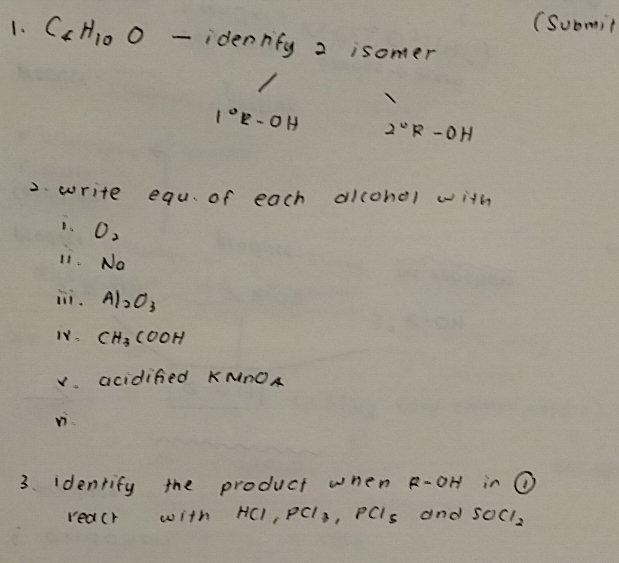 1. C4H10 O — identify 2 isomer
(Submit
1° R-OH
2° R-OH
2. write equ. of each alcohol with
i. O2
ii. Na
iii. Al2O3
iv. CH3COOH
v. acidified KMnO4
vi.
3. Identify the product when R-OH in ①
react with HCl, PCl3, PCl5 and SOCl2